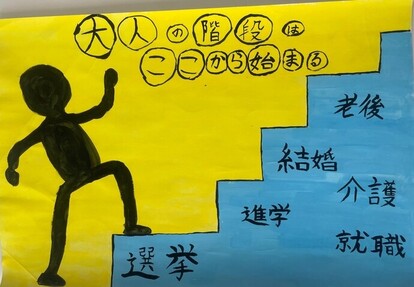 大人の階段は
ここから始まる
老後
結婚
介護
進学
就職
選挙